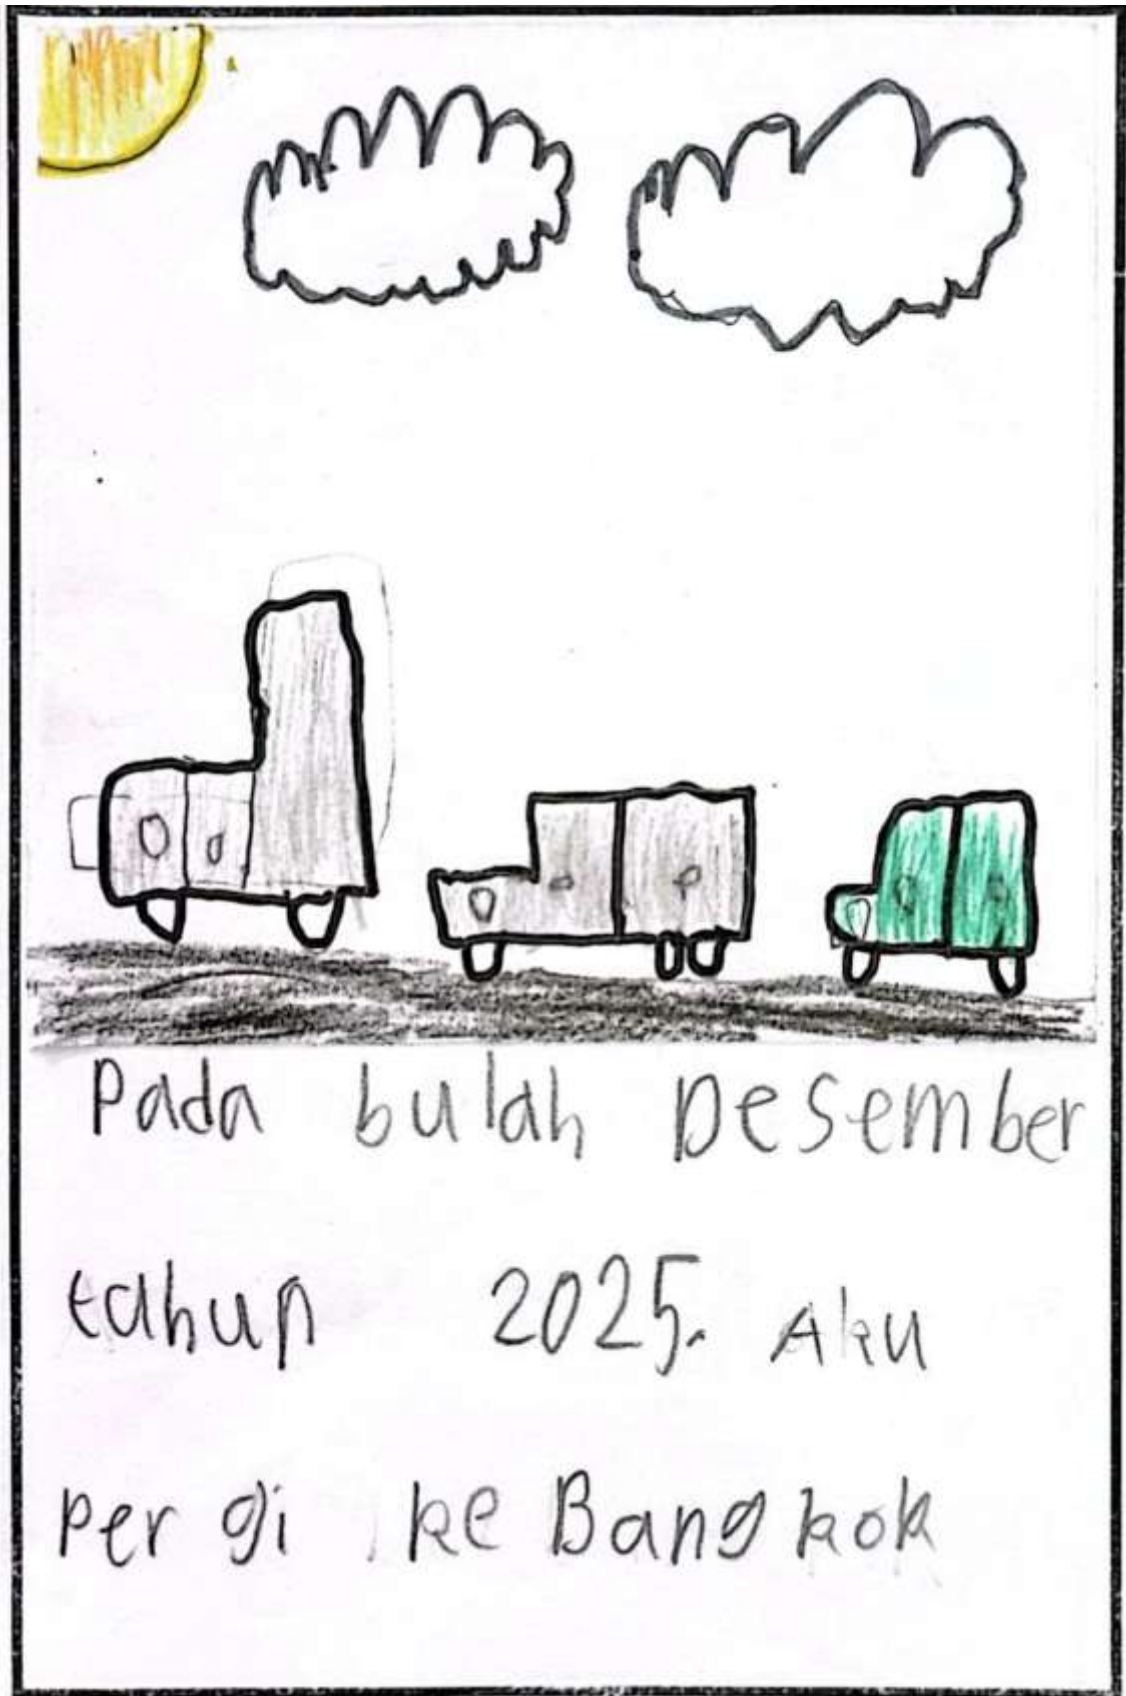 Pada bulah Desember
tahun 2025. Aku
pergi ke Bangkok